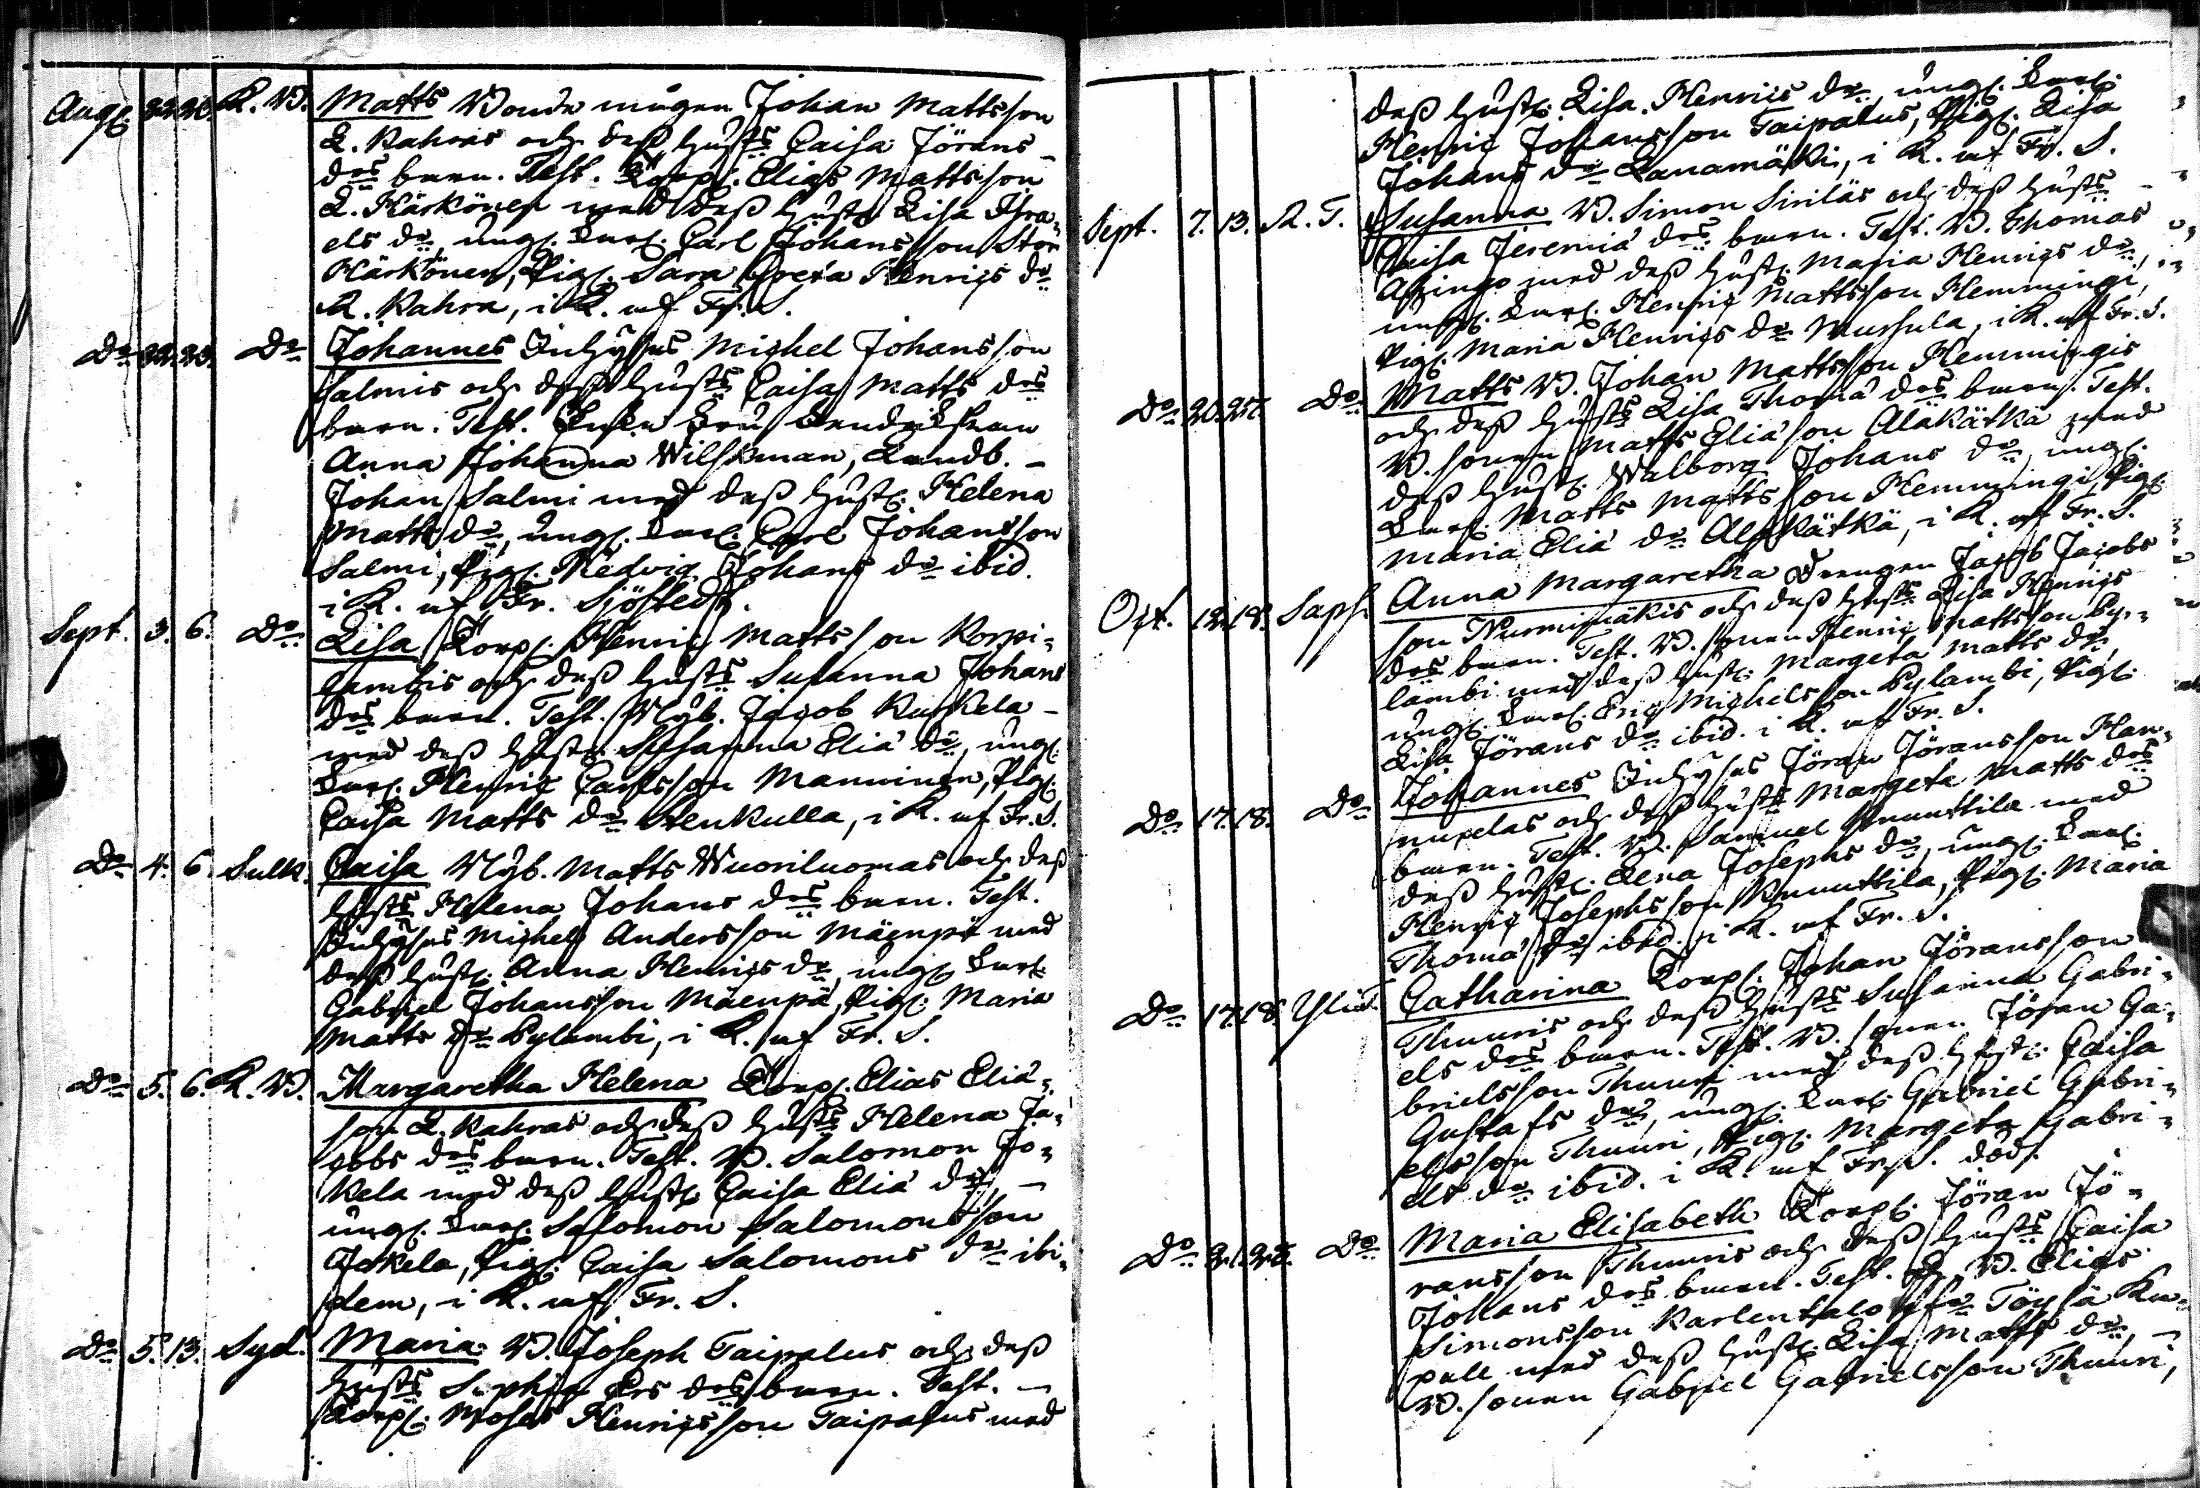 Aug. 22. 23. K. W. Matts Bonde mågen Johan Mattsson
L. Kahras och deß hust:s Caisa Jörans
d:rs barn. Test. Torp. Elias Mattsson
L. Härkönen med deß hust. Lisa Isra-
els d:r, ung. karl. Carl Johansson Stor
Härkönen, Pig. Sara Greta Henrics d:r
K. Kahra, i K. af Fr. S.
D:o 22. 23. D:o Johannes Inhyses Michel Johansson
Salmis och deß hust:s Caisa Matts d:rs
barn. Test. Fru
Anna Johanna Wilskman, Landb.
Johan Salmi med deß hust. Helena
Matts d:r, ung. karl. Carl Johansson
Salmi, Pig. Hedvig Johans d:r ibid.
i K. af Fr. Sjöstedt.
Sept. 3. 6. D:o Lisa Torp. Henric Mattsson Korpi-
lambis och deß hust:s Susanna Johans
d:rs barn. Test. Nyb. Jacob Kuskela
med deß hust. Susanna Eliæ d:r, ung.
karl. Henric Carlsson Manninen, Pig.
Caisa Matts d:r Stenkulla, i K. af Fr. S.
D:o 4. 6. Sulk. Caisa Nyb. Matts Wuoriluomas och deß
hust:s Helena Johans d:rs barn. Test.
Inhyses Michel Andersson Mäenpä med
deß hust. Anna Henrics d:r, ung. karl.
Gabriel Johansson Mäenpä, Pig. Maria
Matts d:r Pylambi, i K. af Fr. S.
D:o 5. 6. K. W. Margaretha Helena Torp. Elias Eliæ-
son L. Kahras och deß hust:s Helena Ja-
cobs d:rs barn. Test. B. Salomon Jo-
kela med deß hust. Caisa Eliæ d:r,
ung. karl. Salomon Salomonsson
Jokela, Pig. Caisa Salomons d:r ibi-
dem, i K. af Fr. S.
D:o 5. 13. Syd. Maria B. Joseph Taipalus och deß
hust:s Sophia Ers d:rs barn. Test.
Torp. Moses Henricsson Taipalus med
deß hust. Lisa Henrics d:r, ung. karl.
Henric Johansson Taipalus, Pig. Lisa
Johans d:r Lanamäki, i K. af Fr. S.
Sept. 7. 13. Susanna B. Simon Siriläs och deß hust:s
Caisa Jeremiæ d:rs barn. Test. B. Thomas
med deß hust. Maria Henrics d:r,
ung. karl. Henric Mattsson Hemmingi,
Pig. Maria Henrics d:r Mursula, i K. af Fr. S.
D:o 20. 27. D:o Matts B. Johan Mattsson Hemmingis
och deß hust:s Lisa Thomæ d:rs barn. Test.
B. sonen Matts Eliæson Alakätkä med
deß hust. Walborg Johans d:r, ung.
karl. Matts Mattsson Hemmingi, Pig.
Maria Eliæ d:r Alakätkä, i K. af Fr. S.
Oct. 12. 18. Saph. Anna Margaretha Drengen Jacob Jacobs
son Nurmimäkis och deß hust:s Lisa Henrics
d:rs barn. Test. B. sonen Henric Mattsson Py-
lambi med deß hust. Margeta Matts d:r,
ung. karl. Eric Michelsson Pylambi, Pig.
Lisa Jörans d:r ibid. i K. af Fr. S.
D:o 17. 18. D:o Johannes Inhyses Jöran Jöransson Han-
nuxelas och deß hust:s Margeta Matts d:rs
barn. Test. B. Samuel Knuuttila med
deß hust. Lena Josephs d:r, ung. karl.
Henric Josephsson Knuuttila, Pig. Maria
Thomæ d:r ibid. i K. af Fr. S.
D:o 17. 18. Ylist. Catharina Torp. Johan Jöransson
Thuuris och deß hust:s Susanna Gabri-
els d:rs barn. Test. B. sonen Jöran Ga-
brielsson Thuuri med deß hust. Caisa
Gustafs d:r, ung. karl. Gabriel Gabri-
elsson Thuuri, Pig. Margeta Gabri-
els d:r ibid. i K. af Fr. S. död.
D:o 21. 25. D:o Maria Elisabeth Torp. Jöran Jö-
ransson Thuuris och deß hust:s Caisa
Johans d:rs barn. Test. B. Elias
Simonsson Karlentalo ifr. Töysä Ka-
pell med deß hust. Lisa Matts d:r,
B. sonen Gabriel Gabrielsson Thuuri,